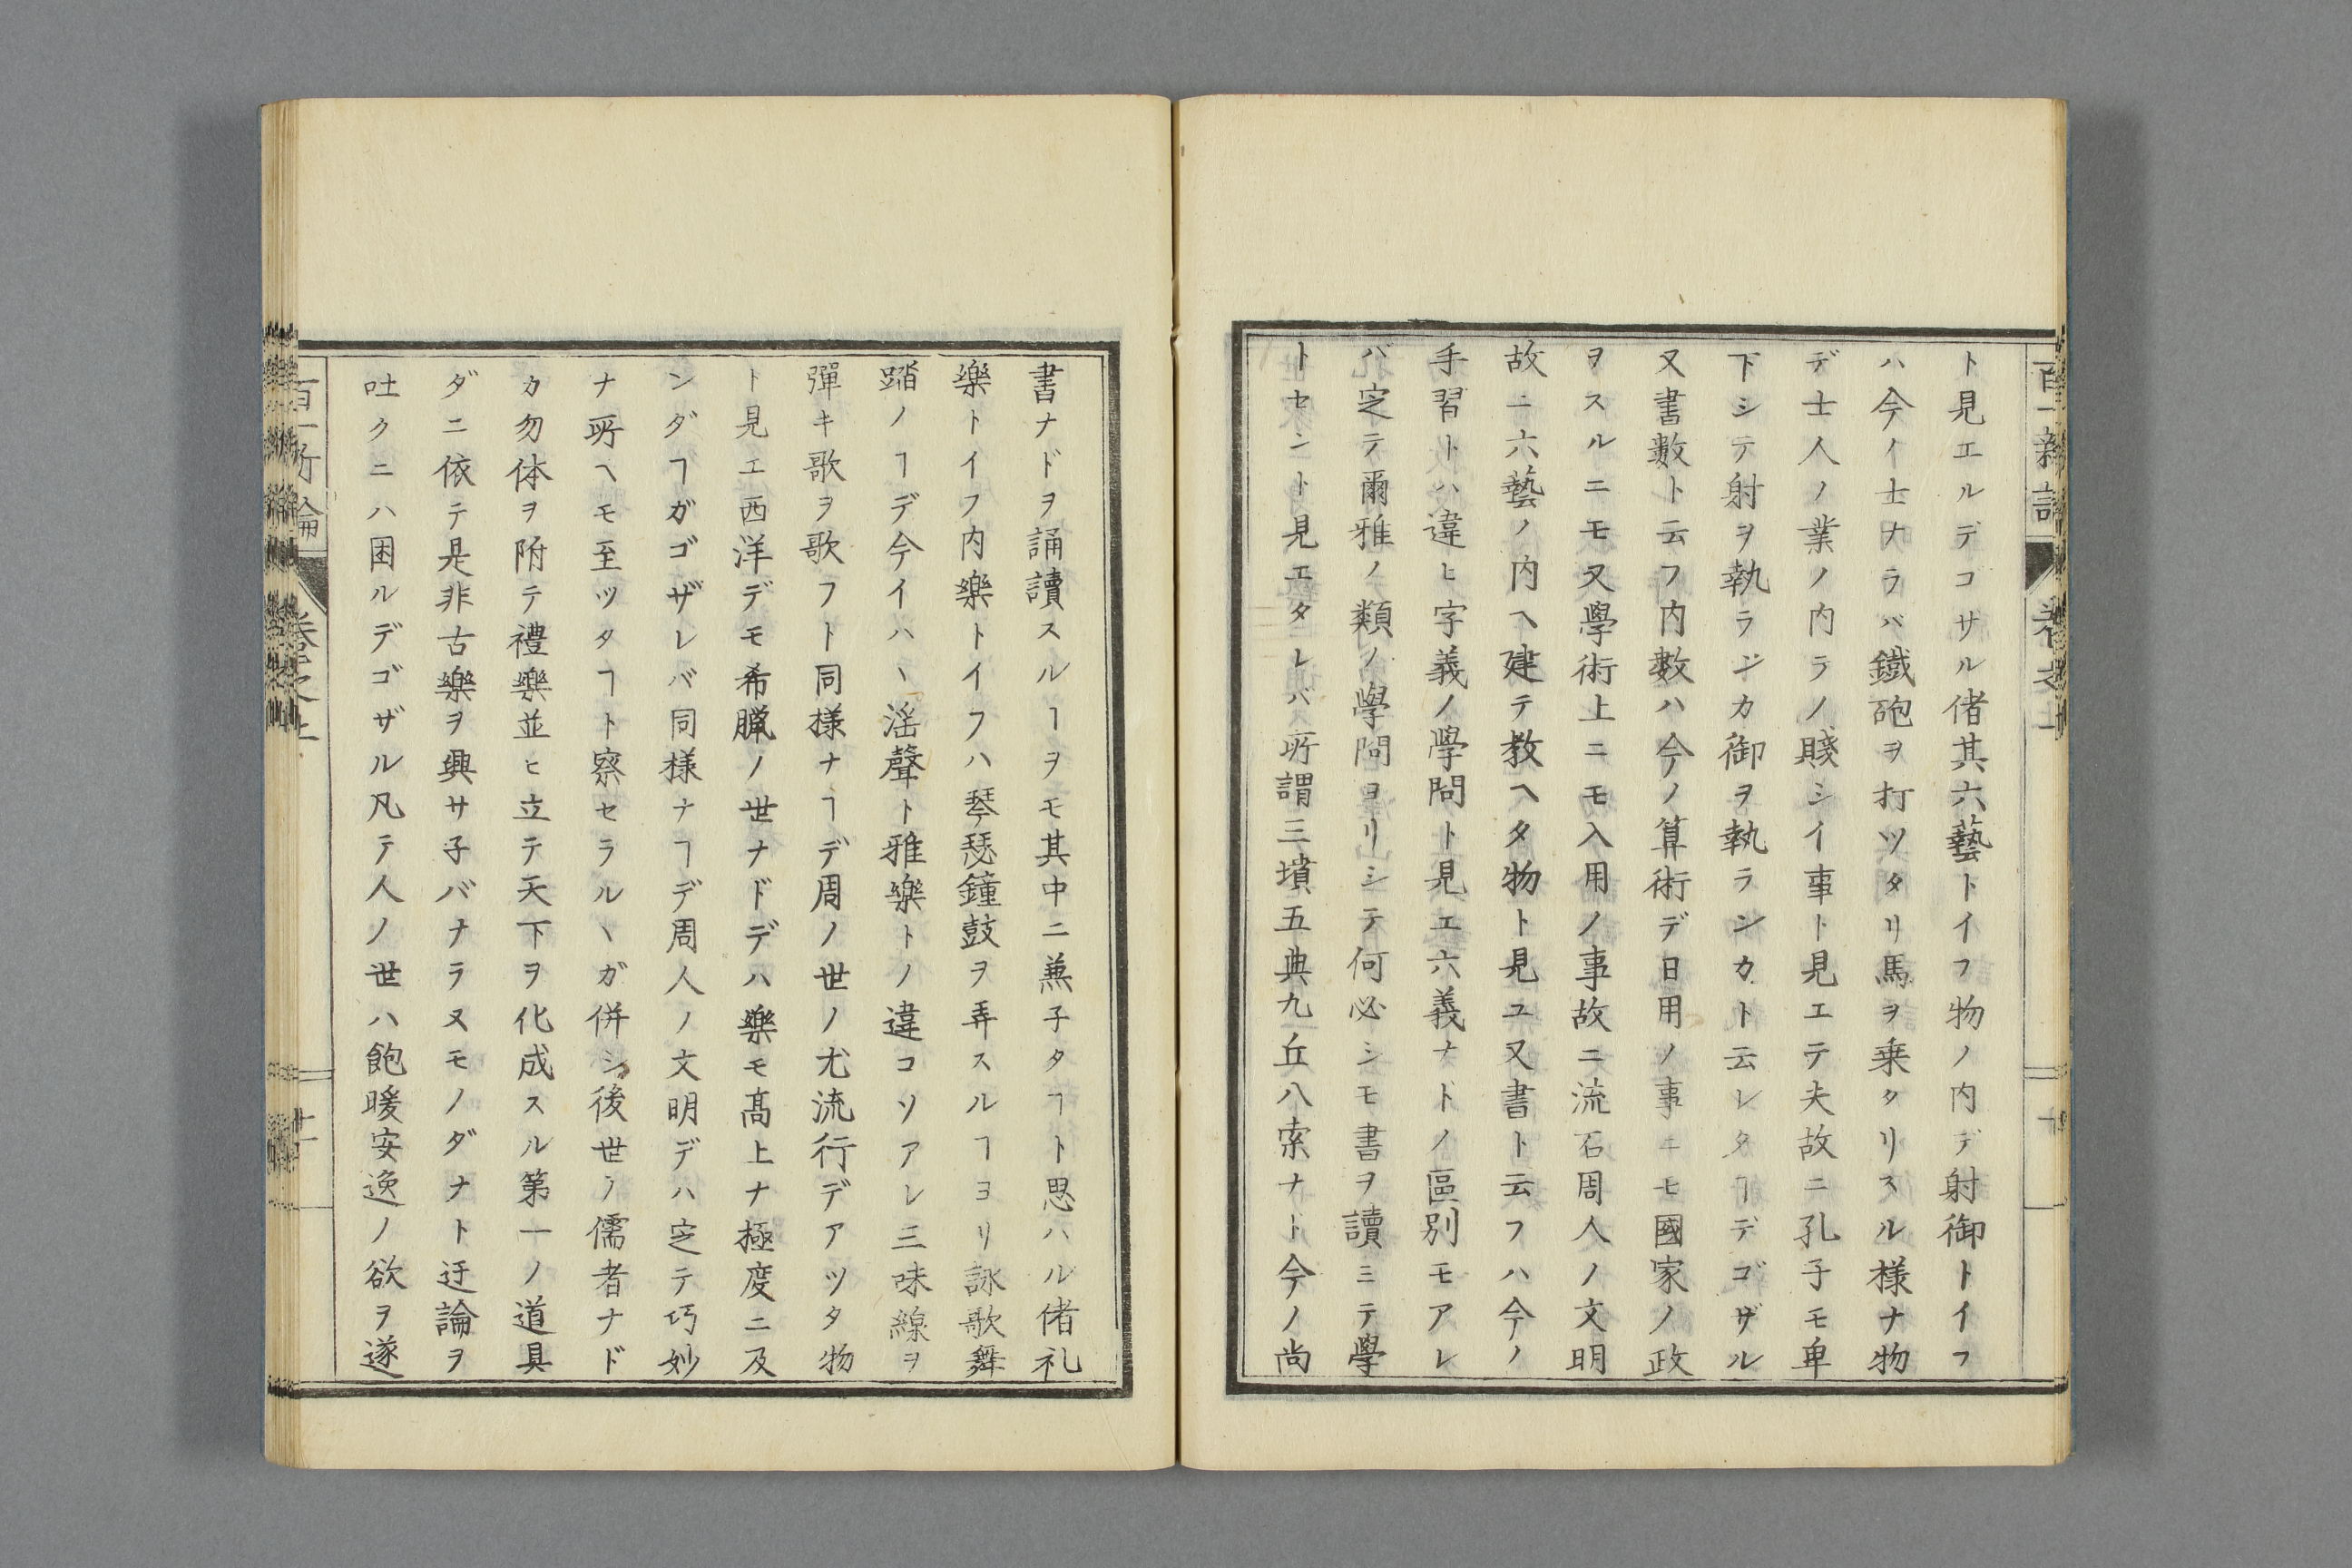 ト見エルデコサル偖其六藝トイフ物ノ内デ射御トイフ
ハ今ノ士ナラバ鐵砲ヲ打ツタリ馬ヲ乗タリスル様ナ物
デ士人ノ業ノ内ラノ賤シイ事ト見エテ夫故ニ孔子モ卑
下シテ射ヲ執ランカ御ヲ執ランカト云レタヿデゴザル
又書數ト云フ内數ハ今ノ算術デ日用ノ事ニモ國家ノ政
ヲスルニモ又學術上ニモ入用ノ事故ニ流石周人ノ文明
故ニ六藝ノ内ヘ建テ教ヘタ物ト見ユ又書ト云フハ今ノ
手習トハ違ヒ字義ノ學問ト見エ六義ナドノ區別モアレ
バ定テ爾雅ノ類ノ學問ヨリシテ何必シモ書ヲ讀ミテ學
トセント見エタレバ所謂三墳五典九丘八索ナド今ノ尚
書ナドヲ誦讀スルヿヲモ其中ニ兼子タヿト思ハル偖礼
樂トイフ内樂トイフハ琴瑟鐘鼓ヲ弄スルヿヨリ詠歌舞
蹈ノヿデ今イハヽ淫聲ト雅樂トノ違コソアレ三味線ヲ
彈キ歌ヲ歌フト同様ナヿデ周ノ世ノ尤流行デアツタ物
ト見エ西洋デモ希臘ノ世ナドデハ樂モ髙上ナ極度ニ及
ンダヿガゴザレバ同様ナヿデ周人ノ文明デハ定テ巧妙
ナ所ヘモ至ツタヿト察セラルヽガ併シ後世ノ儒者ナド
カ勿体ヲ附テ禮樂並ヒ立テ天下ヲ化成スル第一ノ道具
ダニ依テ是非古樂ヲ興サ子バナラヌモノダナト迂論ヲ
吐クニハ困ルデゴザル凡テ人ノ世ハ飽暖安逸ノ欲ヲ遂